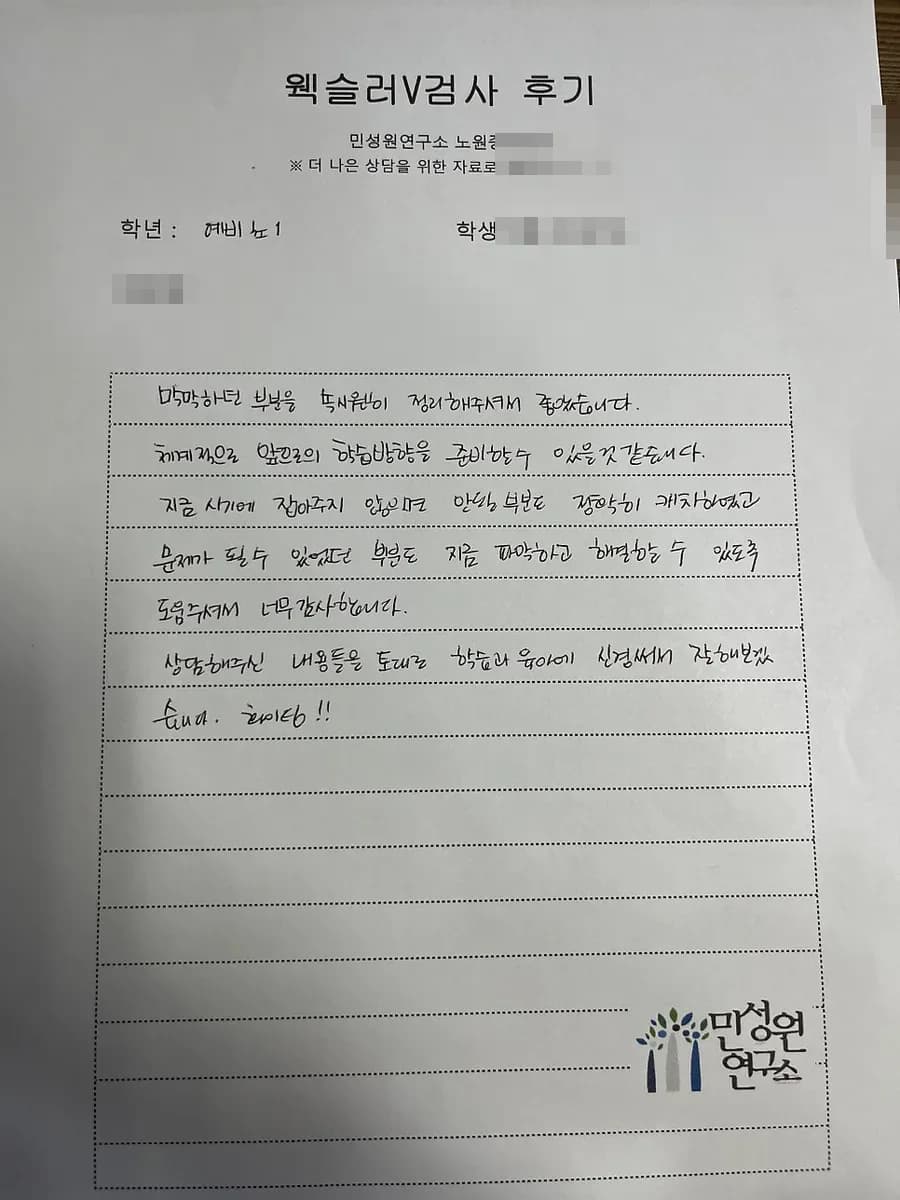 웩슬러V검사 후기
민성원연구소 노원
※ 더 나은 상담을 위한 자료로
학년 : 예비 초1
학생
막막하던 부분을 속시원히 정리해주셔서 좋았습니다.
체계적으로 앞으로의 학습방향을 준비할수 있을것 같습니다.
지금 시기에 잡아주지 않으면 안될 부분도 정확히 캐치하였고
문제가 될수 있었던 부분도 지금 파악하고 해결할 수 있도록
도움주셔서 너무감사합니다.
상담해주신 내용들을 토대로 학습과 육아에 신경써서 잘해보겠
습니다. 화이팅!!
민성원
연구소